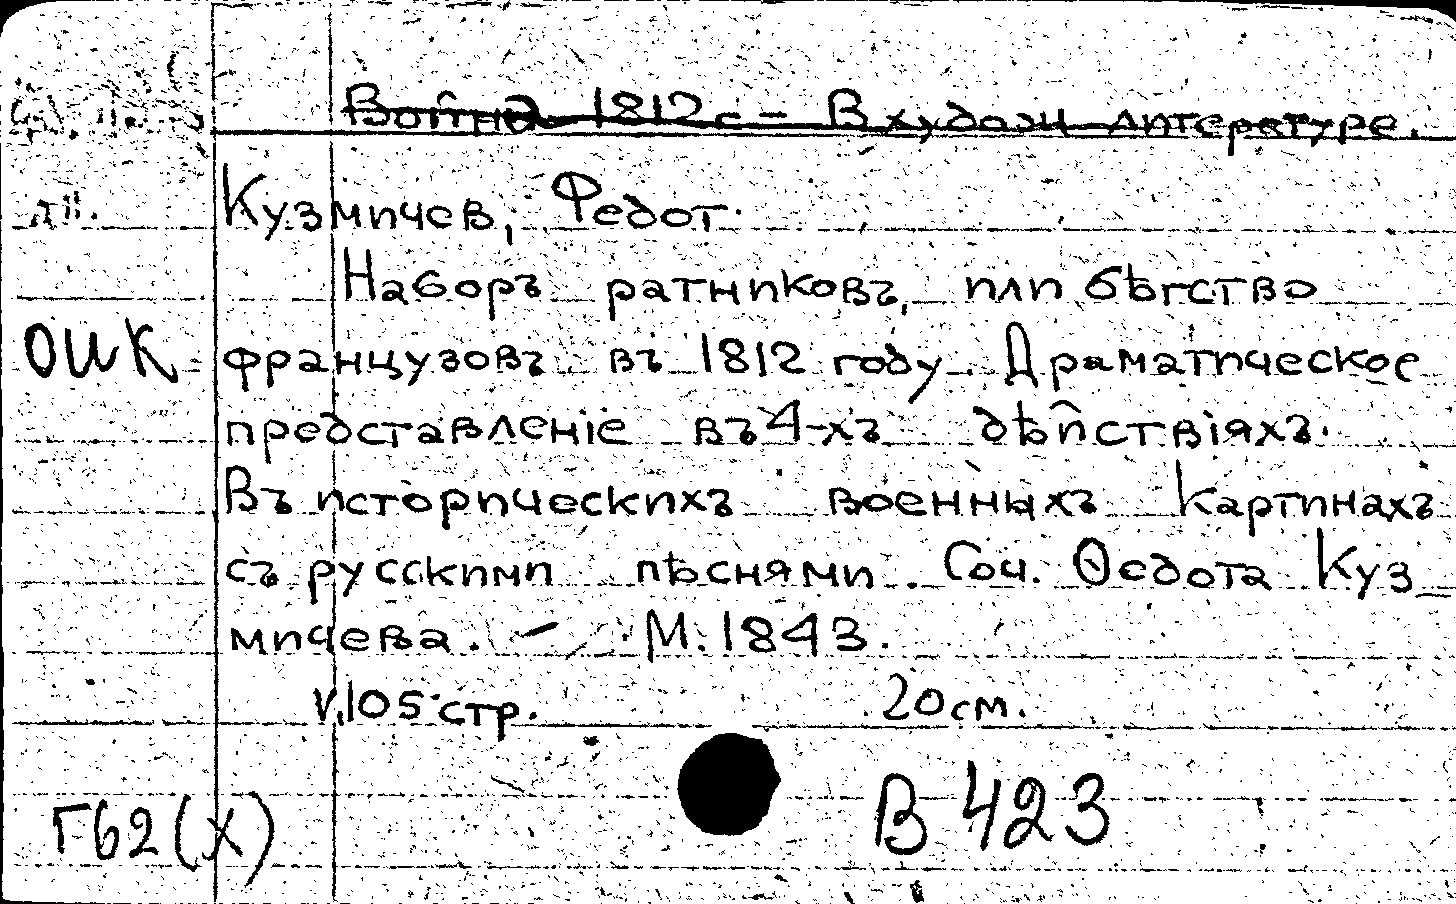 Война 1812 г – В худож литературе.
Кузмичев, Федот.
Наборъ ратниковъ, или бѣгство
ОИК французовъ въ 1812 году. Драматическое
представленіе въ 4-хъ дѣйствіяхъ.
Въ историческихъ военныхъ картинахъ
съ русскими пѣснями. Соч. Ѳедота Куз
мичева. – М. 1843.
V,105 стр. 20 см.
Г62(Х) В 423